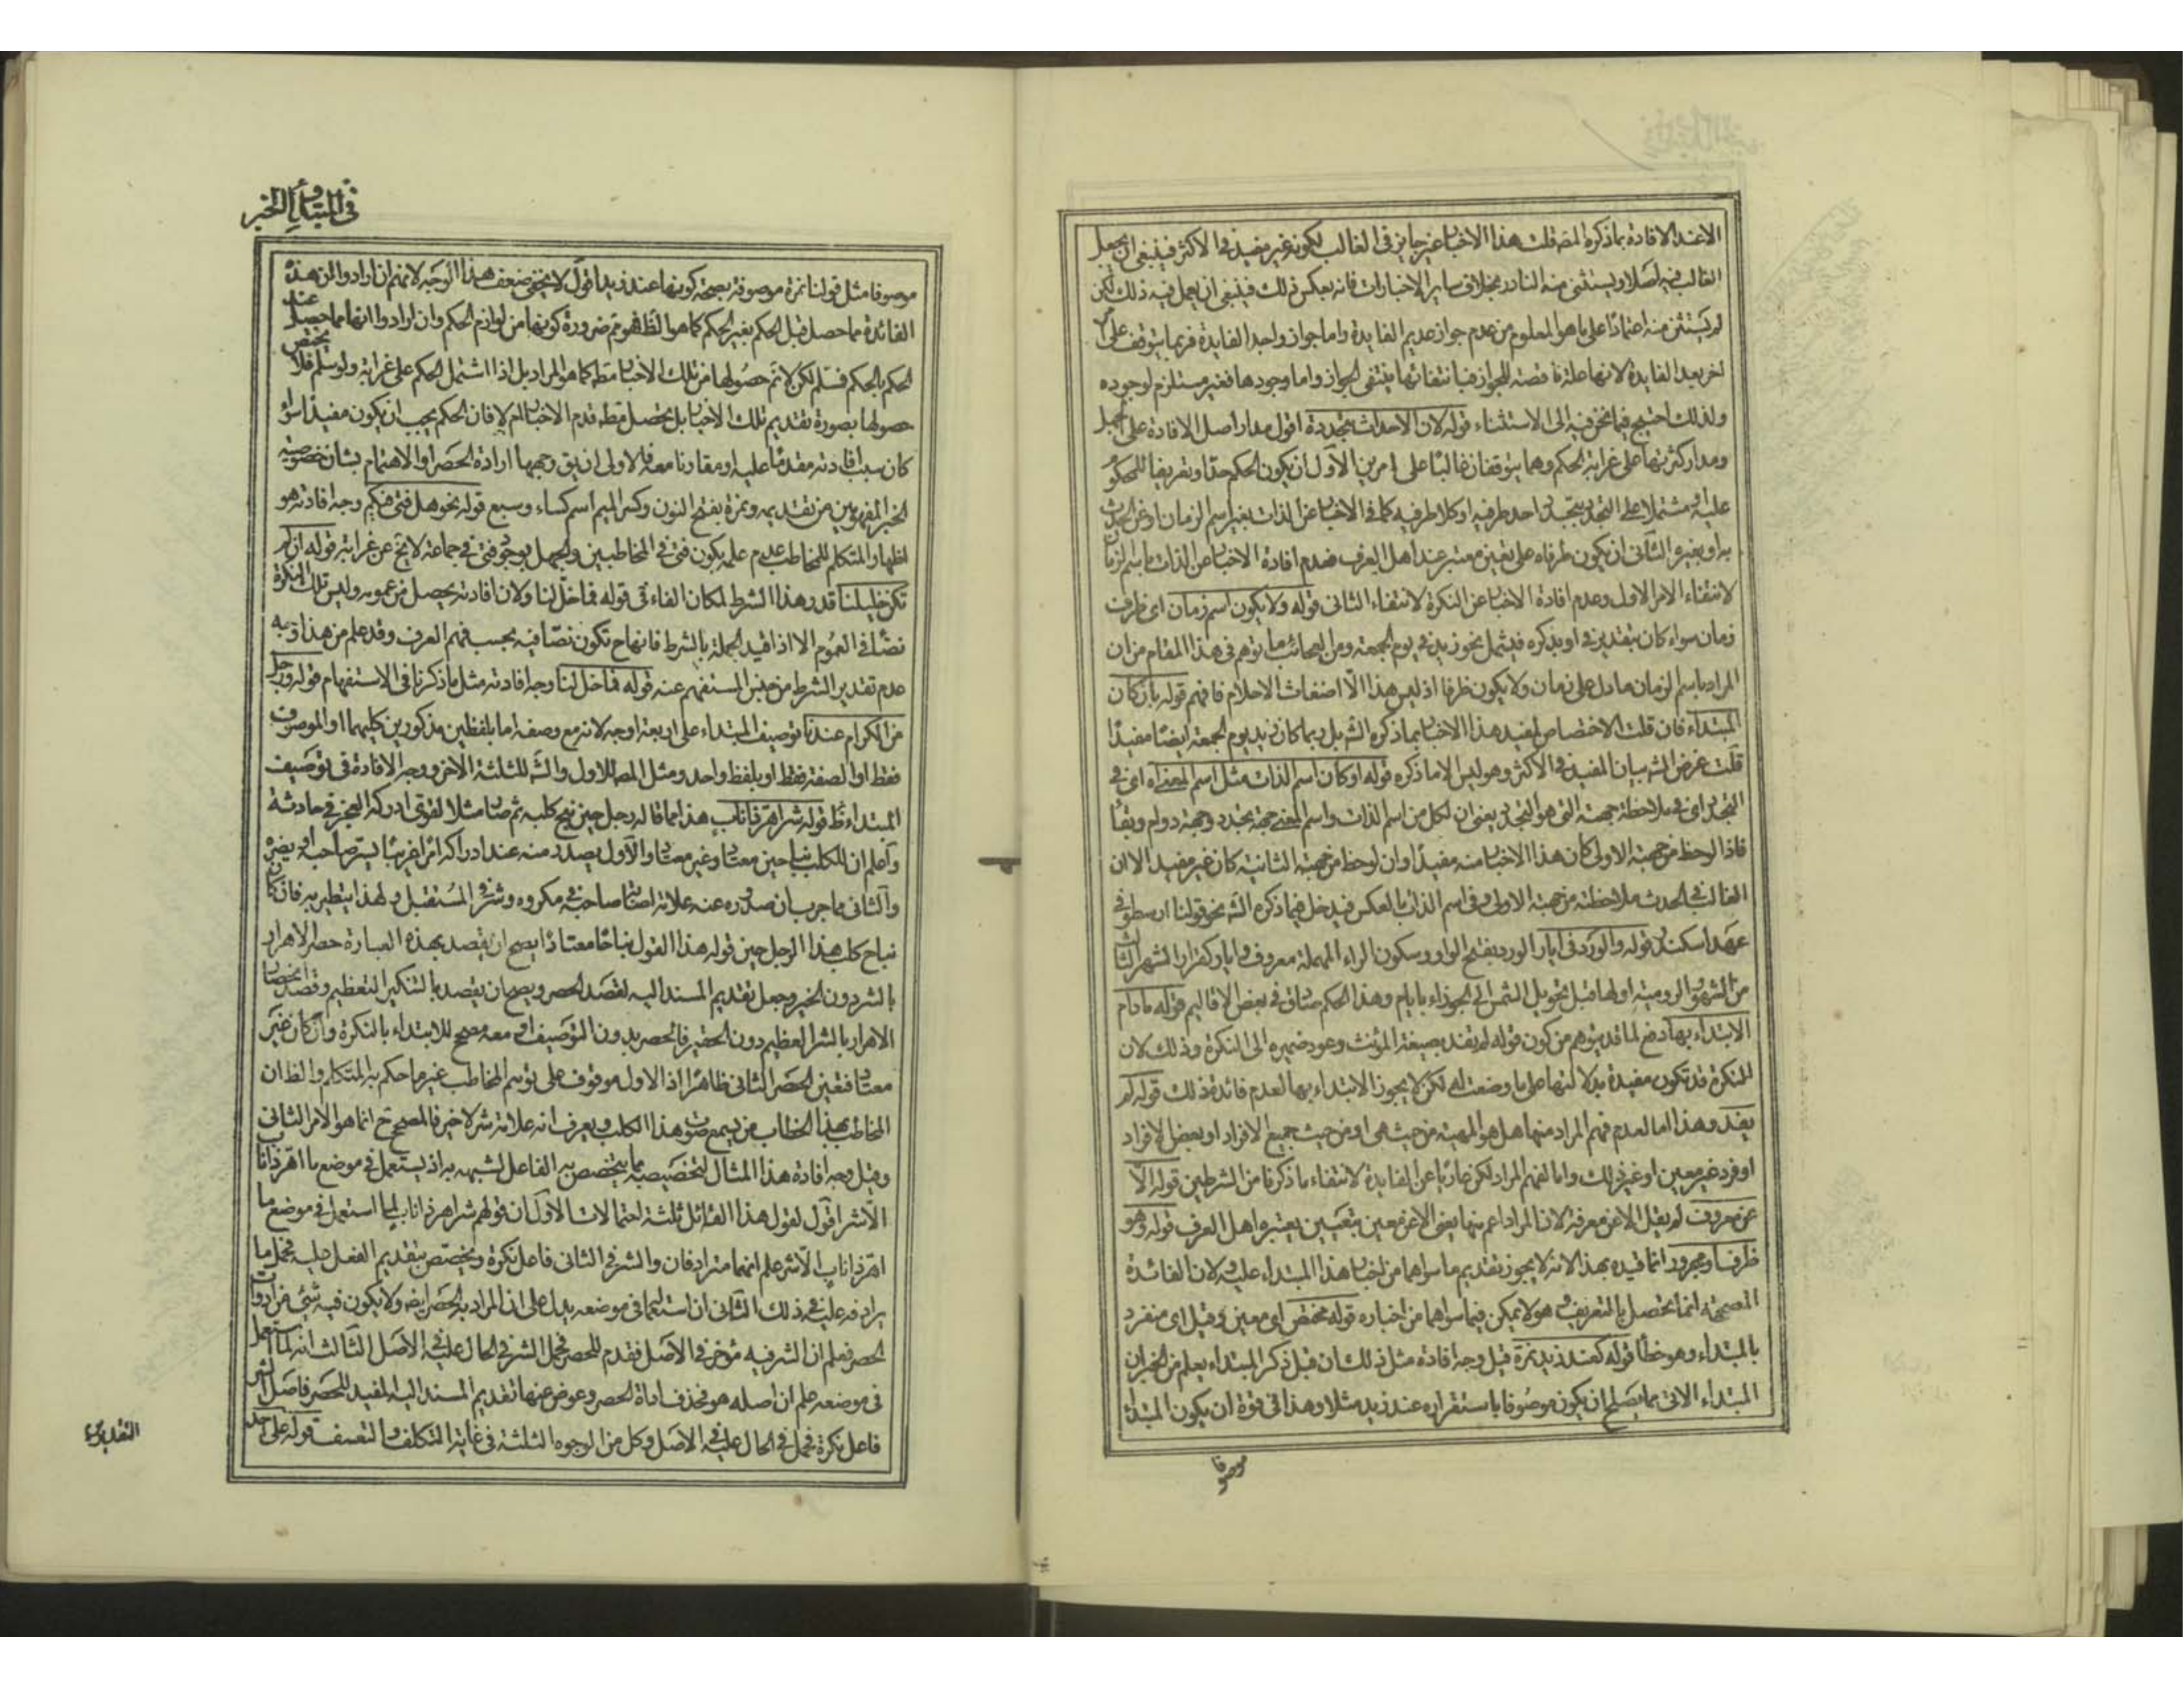 الا عند الافادة بما ذكره المصه قلت هذا الاخبار غير جايز فى الغالب لكونه غير مفيد فى الاكثر فينبغى ان يجعل
الغالب فيه اصلا ويستثنى منه النادر بخلاف ساير الاخبارات فانه بعكس ذلك فينبغى ان يعمل فيه ذلك لكن
لم يستثن منه اعتمادًا على ما هو المعلوم من عدم جواز عديم الفايدة واما جواز واجد الفايدة فربما يتوقف على
اخر بعد الفايدة لانها علة ناقصة للجواز فبانتفائها ينتفى الجواز واما وجودها فغير مستلزم لوجوده
ولذلك احتيج فيما نحن فيه الى الاستثناء قوله لان الاحداث متجددة اقول مدار اصل الافادة على الجهل
ومدار كثرتها على غرابة الحكم وهما يتوقفان غالبًا على امرين الاول ان يكون الحكم حدثا وتعريفا للمحكوم
عليه او مشتملا على التجدد بتجدد احد طرفيه او كلا طرفيه كما فى الاخبار عن الذات بغير اسم الزمان او عن الحدث
به او بغيره الثانى ان يكون طرفاه على تعين معتبر عند اهل العرف فعدم افادة الاخبار عن الذات باسم الزمان
لانتفاء الامر الاول وعدم افادة الاخبار عن النكرة لانتفاء الثانى قوله ولا يكون اسم زمان اى ظرف
زمان سواء كان بتقدير فى او بذكره فيشمل نحو زيد فى يوم الجمعة ومن العجائب ما توهم فى هذا المقام من ان
المراد باسم الزمان ما دل على زمان ولا يكون ظرفا اذ ليس هذا الا اضغاث الاحلام فافهم قوله بان كان
المبتداء فان قلت الاختصاص لمفيد هذا الاخبار بما ذكره الشه بل ربما كان زيد يوم الجمعة ايضًا مفيدًا
قلت غرض الشه بيان المفيد فى الاكثر وهو ليس الا ما ذكره قوله او كان اسم الذات مثل اسم المعنى اه اى فى
التجدد اى فى ملاحظة جهته التى هو التجدد يعنى ان لكل من اسم الذات واسم المعنى جهة تجدد وجهة دوام وبقاء
فاذا لوحظ من جهته الاولى كان هذا الاخبار منه مفيدًا وان لوحظ من جهته الثانية كان غير مفيد الا ان
الغالب فى الحدث ملاحظته من جهته الاولى وفى اسم الذات بالعكس فيدخل فيما ذكره الشه نحو قولنا ارسطو فى
عهد اسكندر قوله والورد فى ايار الورد بفتح الواو وسكون الراء المهملة معروف وايار كفزار الشهر الثالث
من الشهور الرومية اولها قبل تحويل الشمس الى الجوزاء بايام وهذا الحكم صادق فى بعض الاقاليم قوله مادام
الابتداء بها دفع لما قد يتوهم من كون قوله لم تفد بصيغة المؤنث وعود ضميره الى النكرة وذلك لان
النكرة قد تكون مفيدة بدلالتها على ما وضعت له لكن لا يجوز الابتداء بها لعدم فائدة ذلك قوله لم
يفد وهذا اما لعدم فهم المراد منها هل هو المهية من حيث هى او من حيث جميع الافراد او بعض الافراد
او فرد غير معين او غير ذلك واما لفهم المراد لكن عاريا عن الفايدة لانتفاء ما ذكرنا من الشرطين قوله الا
عن معروف لم يقل الا عن معرفة لان المراد اعم منها يعنى الا عن معين بتعيين يعتبره اهل العرف قوله وهو
ظرف او مجرور انما قيده بهذا لانه لا يجوز تقديم ما سواهما من اخبار هذا المبتداء عليه ولان الفائدة
المصححة انما تحصل بالتعريف وهو لا يمكن فيما سواهما من اخباره قوله مختص اى معين وقيل اى منفرد
بالمبتداء وهو خطأ قوله كعند زيد نمرة قيل وجه افادة مثل ذلك ان قبل ذكر المبتداء يعلم من الخبر ان
المبتداء الاتى مما يصلح ان يكون موصوفا باستقراره عند زيد مثلا وهذا فى قوة ان يكون المبتداء
موصوفا
فى المبتداء والخبر
موصوفا مثل قولنا نمرة موصوفة بصحة كونها عند زيد اقول لا يخفى ضعف هذا الوجه لانهم ان ارادوا ان هذه
الفائدة مما حصل قبل الحكم بغير الحكم كما هو الظ فهو ثم ضرورة كونها من لوازم الحكم وان ارادوا انها مما حصل عند
الحكم بالحكم فسلم لكن لا ثم حصولها من تلك الاخبار مطه كما هو المراد بل اذا اشتمل الحكم على غرابة ولو سلم فلا يختص
حصولها بصورة تقديم تلك الاخبار بل تحصل مطه قدم الاخبار ام لا فان الحكم يجب ان يكون مفيدا سواء
كان سبب افادته مقدمًا عليه او مقارنا معه فالاولى ان يق وجهها ارادة الحصر او الاهتمام بشان خصوصية
الخبر المفهومين من تقديمه ونمرة بفتح النون وكسر الميم اسم كساء وسبع قوله نحو هل فتى فيكم وجه افادته هو
اظهار المتكلم للمخاطب عدم علمه بكون فتى فى المخاطبين والجهل بوجود فتى فى جماعة لا يخ عن غرابة قوله ان لم
تكن خليلنا قدر هذا الشرط لمكان الفاء فى قوله فما خل لنا ولان افادته يحصل من عمومه وليس تلك النكرة
نصًا فى العموم الا اذا قيد الجملة بالشرط فانها ح تكون نصًا فيه بحسب فهم العرف وقد علم من هذا وجه
عدم تقدير الشرط من جنس المستفهم عنه قوله فما خل لنا وجه افادته مثل ما ذكرنا فى الاستفهام قوله ورجل
من الكرام عندنا توصيف المبتداء على اربعة اوجه لانه مع وصفه اما بلفظين مذكورين كليهما او الموصوف
فقط او الصفة فقط او بلفظ واحد ومثل المصه للاول والشه للثلثة الاخر ووجه الافادة فى توصيف
المبتداء ظ قوله شر اهر ذا ناب هذا مما قاله رجل حين نبح كلبه ثم صار مثلا لقوى ادركه العجز فى حادثة
واعلم ان للكلب نباحين معتاد وغير معتاد والاول يصدر منه عند ادراكه امرا غريبا يسر صاحبه او يضره
والثانى مما جرب ان صدوره عنه علامة اصابة صاحبه مكروه وشر فى المستقبل ولهذا يتطير به فان كان
نباح كلب هذا الرجل حين قوله هذا القول نباحًا معتادًا يصح ان يقصد بهذه العبارة حصر الاهرار
بالشر دون الخير وجعل تقديم المسند اليه لقصد الحصر ويصح ان يقصد بالتنكير التعظيم وقصد انحصار
الاهرار بالشر العظيم دون الحقير فالحصر بدون التوصيف او معه مصحح للابتداء بالنكرة وان كان غير
معتاد فتعين الحصر الثانى ظاهرًا اذ الاول موقوف على توسم المخاطب غير ما حكم به المتكلم والظ ان
المخاطب بهذا الخطاب من يسمع صوت هذا الكلب ويعرف انه علامة شر لا خير فالمصحح ح انما هو الامر الثانى
وقيل وجه افادة هذا المثال لتخصيصه بما يتخصص به الفاعل لشبهه به اذ يستعمل فى موضع ما اهر ذا ناب
الا شر اقول لقول هذا القائل ثلثة احتمالات الاول ان قولهم شر اهر ذا ناب لما استعمل فى موضع ما
اهر ذا ناب الا شر علم انهما مترادفان والشر فى الثانى فاعل نكرة ويختص بتقديم الفعل عليه فحمل ما
يرادفه عليه فى ذلك الثانى ان استعماله فى موضعه يدل على ان المراد به الحصر ايضه ولا يكون فيه شئ من ادوات
الحصر فعلم ان الشر فيه مؤخر فى الاصل فقدم للحصر فحمل الشر فى الحال عليه فى الاصل الثالث انه لما استعمل
فى موضعه علم ان اصله هو فحذف اداة الحصر وعوض عنها تقديم المسند اليه المفيد للحصر فاصل الشر
فاعل نكرة فحمل فى الحال عليه فى الاصل وكل من الوجوه الثلثة فى غاية التكلف والتعسف قوله على احد
التقديرين